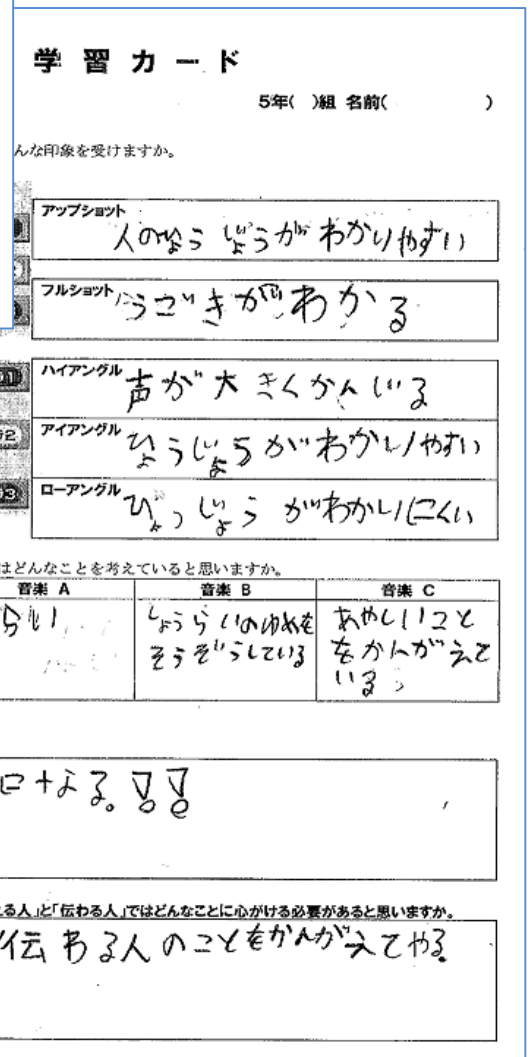 学習カード
5年( )組 名前( )
んな印象を受けますか。
アップショット
人のひょうじょうがわかりやすい
フルショット
うごきがわかる
ハイアングル
声が大きくかんじる
アイアングル
ひょうじょうがわかりやすい
ローアングル
ひょうじょうがわかりにくい
はどんなことを考えていると思いますか。
音楽 A 音楽 B 音楽 C
らい
しょうらいのゆめを
そうぞうしている
あやしいこと
をかんがえて
いる。
になる。
える人」と「伝わる人」ではどんなことに心がける必要があると思いますか。
伝わる人のことをかんがえてやる